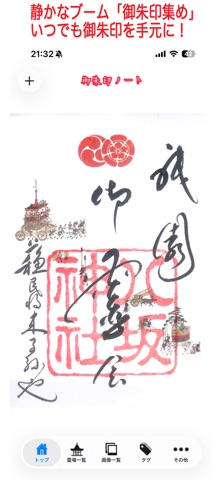 静かなブーム「御朱印集め」
いつでも御朱印を手元に！
21:32
御朱印ノート
祇園
御霊会
蘇民将来子孫也
八坂
神社
トップ
霊場一覧
画像一覧
タグ
その他